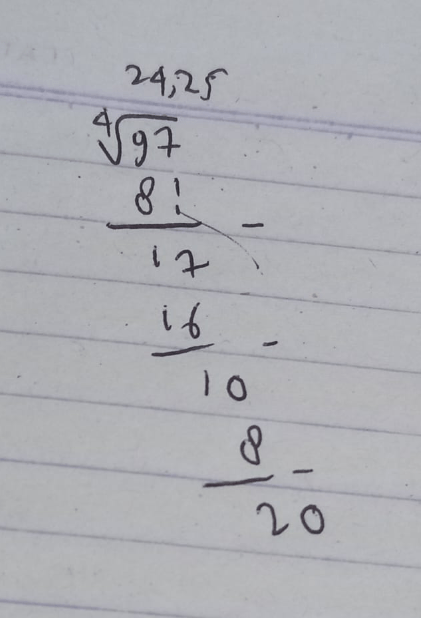 24,25
4√97
8!
17
16
10
8
20